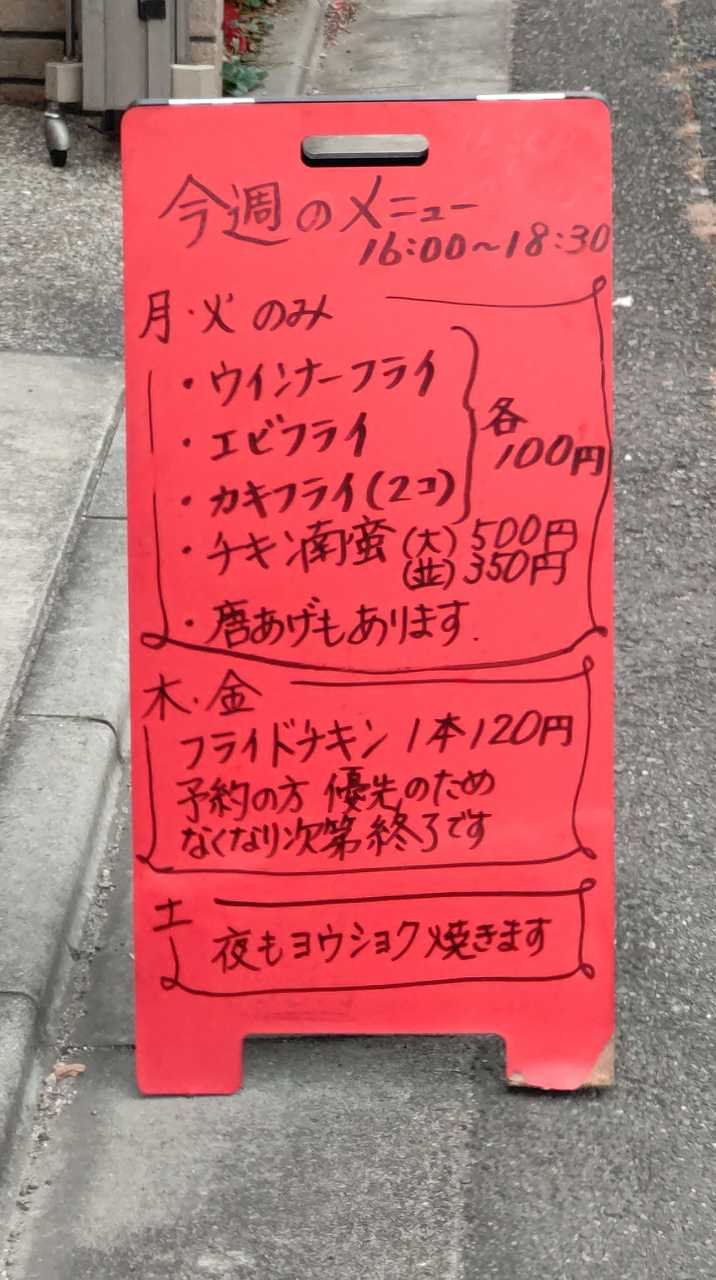 今週のメニュー
16:00～18:30
月・火 のみ
・ウインナーフライ
・エビフライ
・カキフライ(2コ)
各
100円
・チキン南蛮 (大) 500円
(並) 350円
・唐あげもあります.
木・金
フライドチキン 1本120円
予約の方 優先のため
なくなり次第終了です
土
夜もヨウショク焼きます